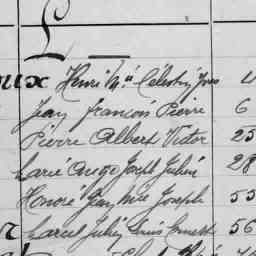 L
oux Henri M.el Célestin Yves
Jean François Pierre 6
Pierre Albert Victor 25
Marie Ange Joseph Julien 28
Honoré Jean Mie Joseph 55
Marcel Julien Louis Ernest 56